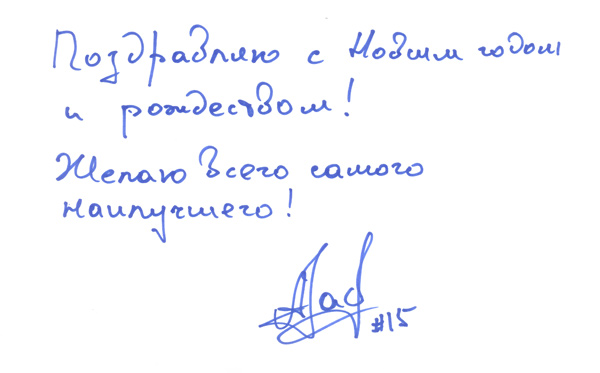 Поздравляю с Новым годом
и рождеством!
Желаю всего самого
наилучшего!
#15